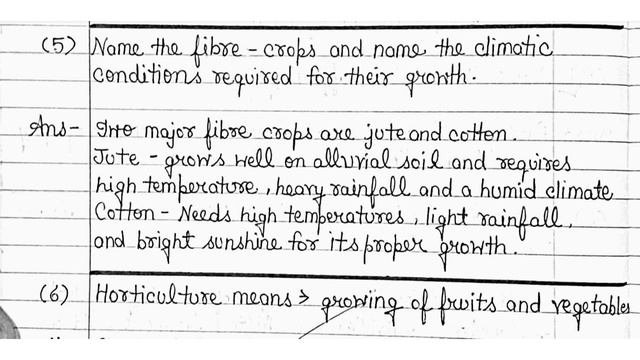 (5) Name the fibre - crops and name the climatic
conditions required for their growth.
Ans- Two major fibre crops are jute and cotton.
Jute - grows well on alluvial soil and requires
high temperature, heavy rainfall and a humid climate
Cotton - Needs high temperatures, light rainfall,
and bright sunshine for its proper growth.
(6) Horticulture means > growing of fruits and vegetables